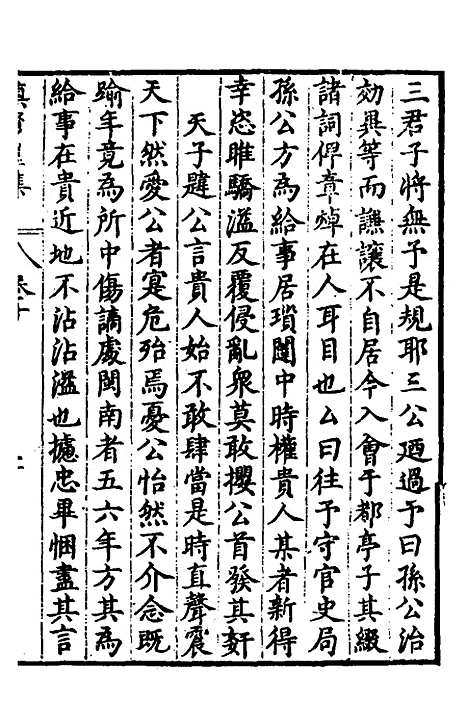 三君子將無予是規耶三公廼過予曰孫公治
効異等而讌讓不自居今入會于都亭子其綴
諸詞俾章焯在人耳目也公曰往予守官史局
孫公方為給事居瑣闥中時權貴人某者新得
幸恣睢驕溢反覆侵亂衆莫敢攖公首發其奸
天子韙公言貴人始不敢肆當是時直聲震
天下然愛公者寔危殆焉憂公怡然不介念既
踰年竟為所中傷謫處閩南者五六年方其為
給事在貴近地不沾沾溢也攄忠畢悃盡其言
集
卷十